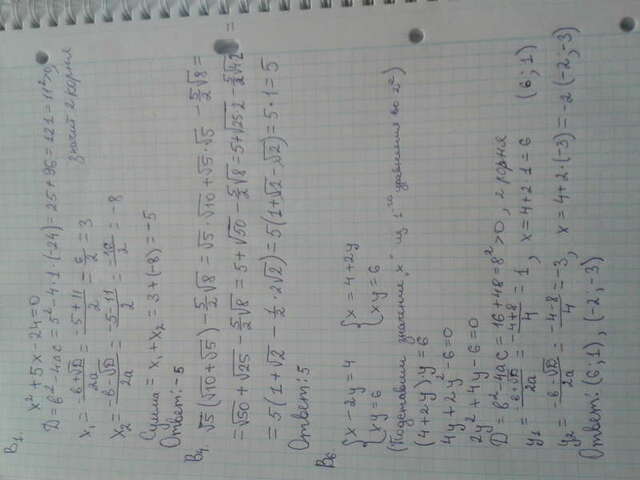 В1.
x² + 5x - 24 = 0
D = b² - 4ac = 5² - 4·1·(-24) = 25 + 96 = 121 = 11² > 0,
значит 2 корня
x₁ = (-b+√D)/2a = (-5+11)/2 = 6/2 = 3
x₂ = (-b-√D)/2a = (-5-11)/2 = -16/2 = -8
Сумма = x₁ + x₂ = 3 + (-8) = -5
Ответ: -5
В4. √5 (√10 + √5) - 5/2 √8 = √5 · √10 + √5 · √5 - 5/2 √8 =
= √50 + √25 - 5/2 √8 = 5 + √50 - 5/2 √8 = 5 + √25·2 - 5/2 √4·2 =
= 5(1 + √2 - 1/2 · 2√2) = 5(1 + √2 - √2) = 5·1 = 5
Ответ: 5
В6.
{x - 2y = 4 {x = 4 + 2y
{xy = 6 {xy = 6
(Подставим значение "x" из 1-го уравнения во 2е)
(4 + 2y)·y = 6
4y + 2y² - 6 = 0
2y² + 4y - 6 = 0
D = b² - 4ac = 16 + 48 = 8² > 0, 2 корня
y₁ = (-b+√D)/2a = (-4+8)/4 = 1, x = 4 + 2·1 = 6 (6; 1)
y₂ = (-b-√D)/2a = (-4-8)/4 = -3, x = 4 + 2·(-3) = -2 (-2; -3)
Ответ: (6; 1), (-2; -3)